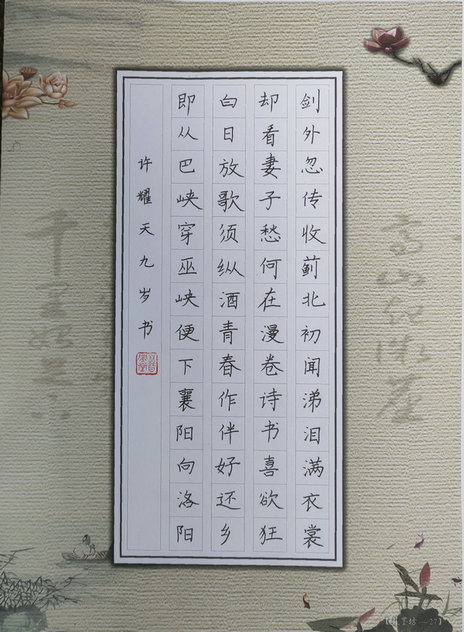 剑外忽传收蓟北初闻涕泪满衣裳
却看妻子愁何在漫卷诗书喜欲狂
白日放歌须纵酒青春作伴好还乡
即从巴峡穿巫峡便下襄阳向洛阳
许耀天九岁书